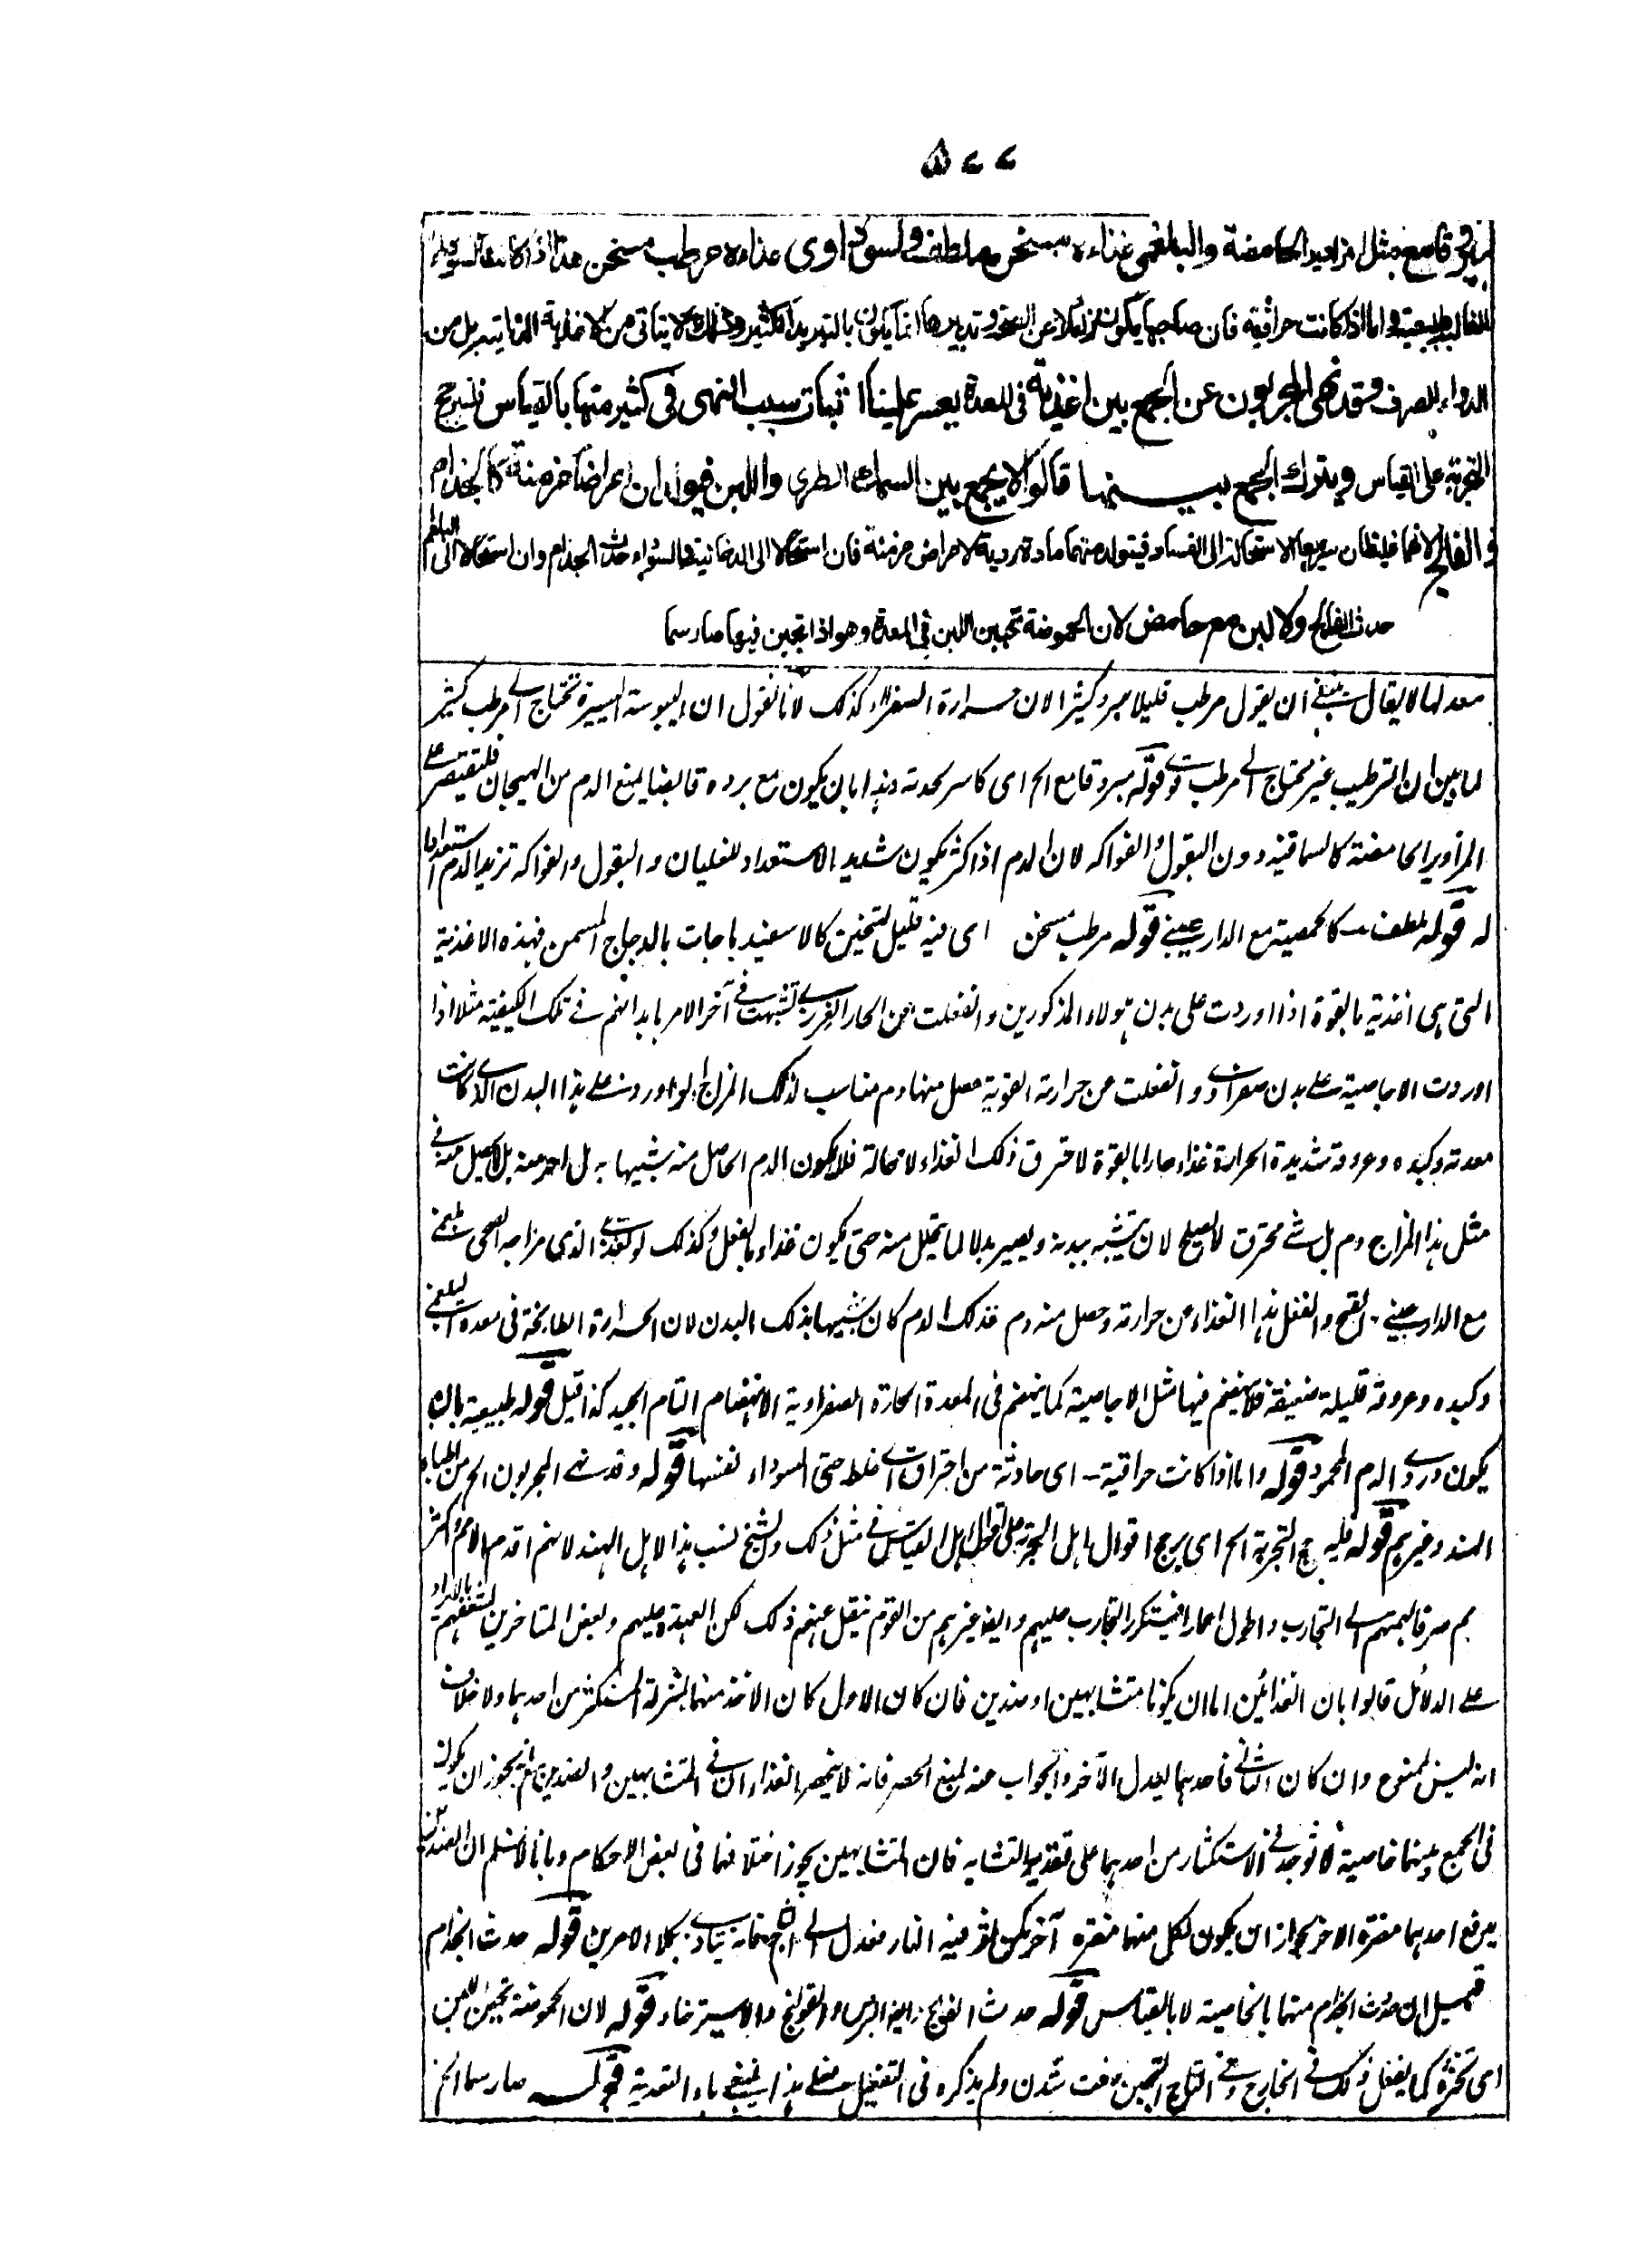 ۵۷۷
مبرد قامع مثل المزاوير الحامضة والبلغمى غذاءه مسخن ملطف والسوداوى غذاءه مرطب مسخن هذا اذا كانت السوداء
الغالبة طبيعية واما اذا كانت حراقية فان صاحبها يكون تدبيرها انما يكون بالتبريد الكثير وذلك لا يتأتى من الاغذية انما يتبدل من
الدواء الصرف وقد نهى المجربون عن الجمع بين اغذية فى المعدة يعسر علينا اثبات سبب النهى فى كثير منها بالقياس فليرجح
التجربة على القياس ويترك الجمع بينها قالوا لا يجمع بين السمك الطرى واللبن فيولدان امراضا مزمنة كالجذام
والفالج لانهما غليظان سريعا الاستحالة الى الفساد فيتولد منهما مادة ردية لامراض مزمنة فان استحالا الى الدخانية والسوداء حدث الجذام وان استحالا الى البلغم
حدث الفالج ولا لبن مع حامض لان الحموضة تجبن اللبن فى المعدة وهو اذا تجبن فيها صار سما
معد لها لا يقال ينبغى ان يقول مرطب قليلا مبرد كثيرا لان حرارة الصفراء كذلك لانا نقول ان اليبوسة اليسيرة تحتاج الى مرطب كثير
لما بين ان الترطيب غير محتاج الى مرطب قوى قوله مبرد قامع الخ اى كاسر لحدته وهذا بان يكون مع برده قابضا ليمنع الدم من الهيجان فليقتصر على
المزاوير الحامضة كالسماقية دون البقول والفواكه لان الدم اذا كثر يكون شديد الاستعداد للغليان والبقول والفواكه تزيد الدم استعدادا
له قوله ملطف كالحمصية مع الدارصينى قوله مرطب مسخن اى فيه قليل تسخين كالاسفيدباجات بالدجاج المسمن فهذه الاغذية
التى هى اغذية بالقوة اذا اوردت على بدن هؤلاء المذكورين وانفعلت من الحار الغريزى تشبهت فى آخر الامر بابدانهم فى تلك الكيفية مثلا اذا
اوردت الاجاصية على بدن صفراوى وانفعلت عن حرارته القوية حصل منها دم مناسب لذلك المزاج ولو اوردت على هذا البدن الذى كانت
معدته وكبده وعروقه شديدة الحرارة غذاء حارا بالقوة لاحترق ذلك الغذاء لا محالة فلا يكون الدم الحاصل منه شبيها به بل لا يحصل منه فى
مثل هذا المزاج دم بل شئ محترق لا يصلح لان يتشبه ببدنه ويصير بدلا لما يتحلل منه حتى يكون غذاء بالفعل وكذلك لو تغذى الذى مزاجه الصحى بلغمى
مع الدارصينى والقمح وانفعل هذا الغذاء عن حرارته وحصل منه دم فذلك الدم كان شبيها بذلك البدن لان الحرارة الطابخة فى معدة البلغمى
وكبده وعروقه قليلة ضعيفة فلا ينهضم فيها مثل الاجاصية كما ينهضم فى المعدة الحارة الصفراوية الانهضام التام الجيد كذا قيل قوله طبيعية بان
يكون دردى الدم المحمود قوله واما اذا كانت حراقية اى حادثة من احتراق اى خلط حتى السوداء نفسها قوله وقد نهى المجربون الخ من اطباء
الهند وغيرهم قوله فليرجح التجربة الخ اى يرجح اقوال اهل التجربة على اقوال اهل القياس فى مثل ذلك والشيخ نسب هذا لاهل الهند لانهم اقدم الامم واكثر
هم صرفا لهمتهم الى التجارب واطول اعمارا فيتكرر التجارب عليهم وايضا غيرهم من القوم ينقل عنهم ذلك لكن العهدة عليهم وبعض المتاخرين
على الدلائل قالوا بان الغذائين اما ان يكونا متشابهين او ضدين فان كان الاول كان الاخذ منهما بمنزلة المستكثر من احدهما ولا خلاف
انه ليس بممنوع وان كان الثانى فاحدهما يعدل الآخر والجواب عنه بمنع الحصر فانه لا ينحصر الغذاءان فى المتشابهين والضدين ثم يجوز ان يكون
فى الجمع بينهما خاصية لا توجد فى الاستكثار من احدهما على تقدير التشابه فان المتشابهين يجوز اختلافهما فى بعض الاحكام وبانا لا نسلم ان الضدين
يدفع احدهما مضرة الاخر لجواز ان يكون لكل منهما مضرة آخر كمن تؤذيه النار فعدل الى الثلج فانه يتاذى بكلا الامرين قوله حدث الجذام
قيل ان حدوث الجذام منهما بالخاصية لا بالقياس قوله حدث الفالج وايضا البرص والقولنج والاسترخاء قوله لان الحموضة تجبن اللبن
اى تخثره كما يفعل ذلك فى الخارج وفى التاج التجبن سفت شدن ولم يذكره فى التفعيل فعلى هذا ينبغى باء التعدية قوله صار سما الخ